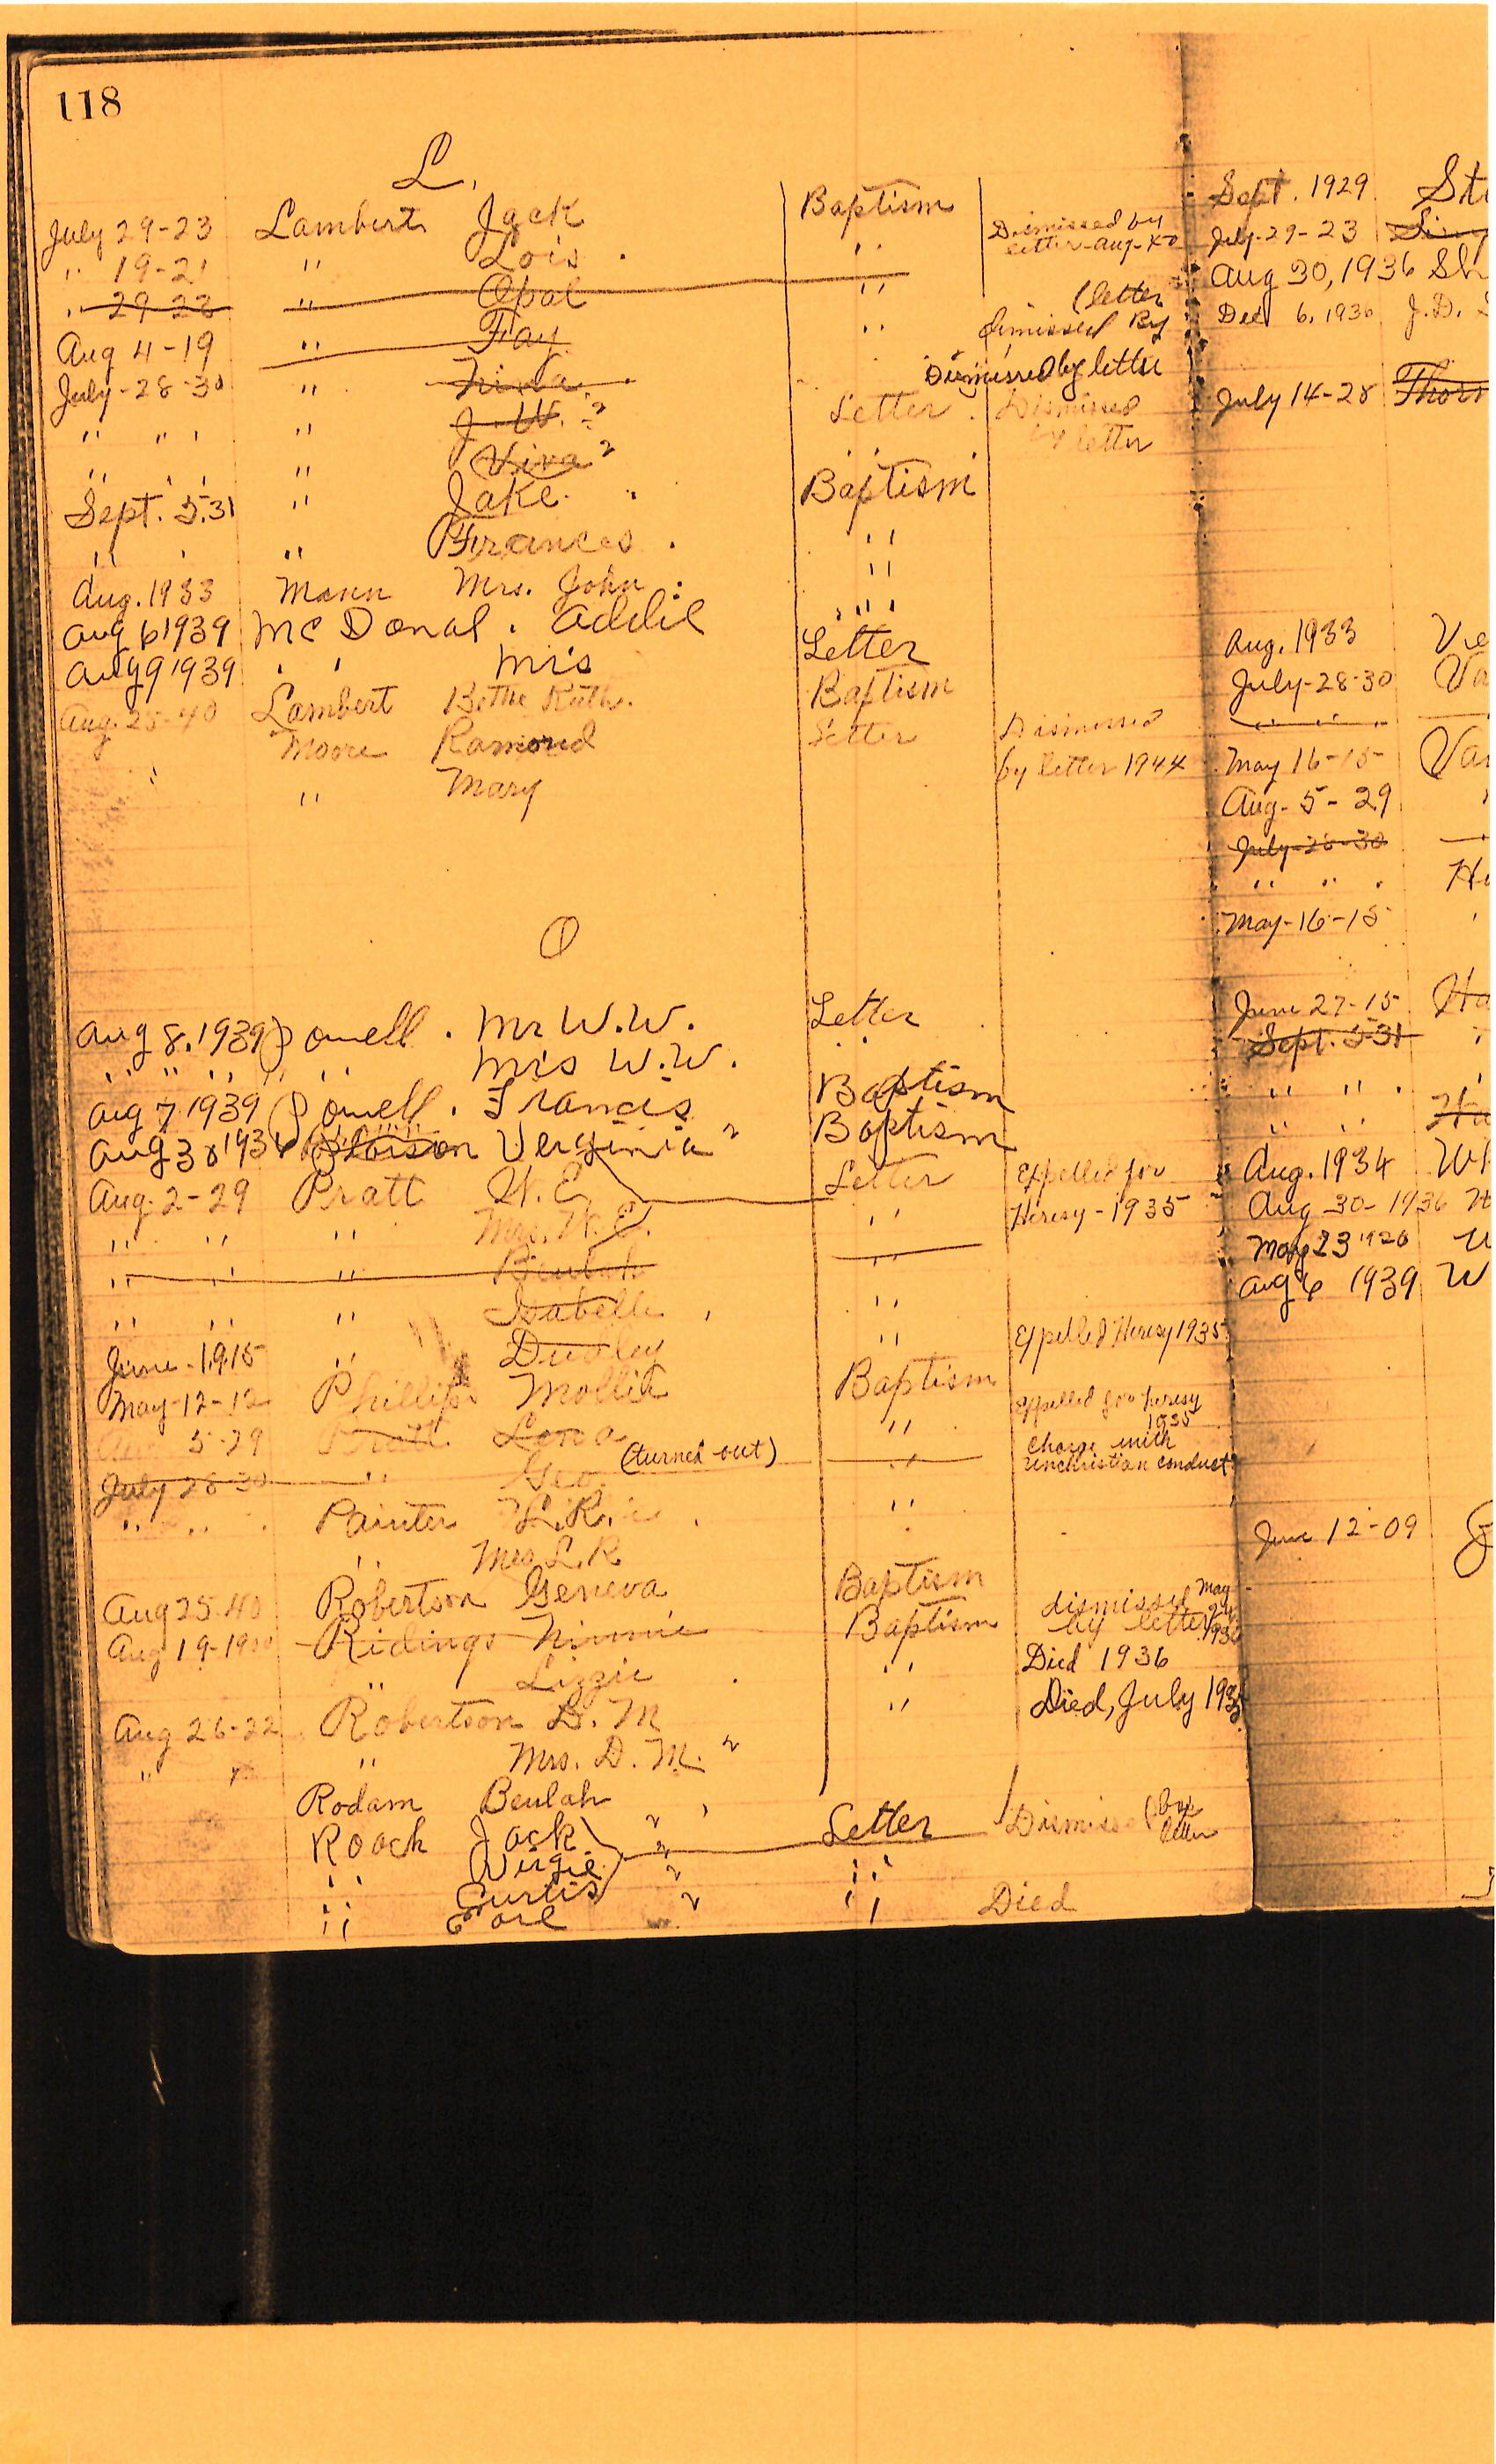 118
L.
July 29-23 Lambert Jack Baptism Dismissed by
letter-Aug-40
" 19-21 " Lois. "
" 29-23 " Opal "
Aug 4-19 " Fay " dismissed By (letter
July-28-30 " Dismissed by letter
" " " " J. W. Letter. Dismissed
by letter
" " " " Viva "
Sept. 5.31 " Jake. Baptism
" " " Frances. "
Aug. 1933 Mann Mrs. John "
Aug 6 1939 McDonal. Addie "
Aug 9 1939 " " Mrs Letter
Aug-25-40 Lambert Bettie Ruth. Baptism
Moore Ramond Letter Dismissed
" " Mary by letter 1944
O
Aug 8, 1939 Powell. Mr W.W. Letter
" " " " " Mrs W.W. "
Aug 7, 1939 Powell. Francis Baptism
Aug 30 1936 Verginia Baptism
Aug-2-29 Pratt W. E. Letter Expelled for
" " " Mrs. W. E. " Heresy-1935
" " " Beulah "
" " " Isabelle "
June-1915 " Dudley " Expelled Heresy 1935
May-12-12 Phillips Mollie Baptism
5-29 Pratt Lena " Expelled for heresy
1935
July 28-30 " Geo. (turned out) " Charge with
unchristian conduct
" " Painter L.R. "
" Mrs L.R "
Aug 25-40 Robertson Geneva Baptism
Aug 19-19 Ridings Minnie Baptism dismissed May
by letter
" Lizzie " Died 1936
Aug 26-22 Robertson D. M " Died, July
" " " Mrs. D. M.
Rodam Beulah
Roach Jack Letter Dismissed (by
letter
" Virgie "
" Curtis "
" Earl " Died
Sept. 1929
July-29-23
Aug 30, 1936
Dec 6, 1936 J.D.
July 14-28
Aug. 1933
July-28-30
" " "
May 16-15
Aug-5-29
July-28-30
" " "
May-16-15
June 27-15
Sept. 5-31
" " "
" "
Aug. 1934
Aug-30-1936
May 23 1920
Aug 6 1939
June 12-09